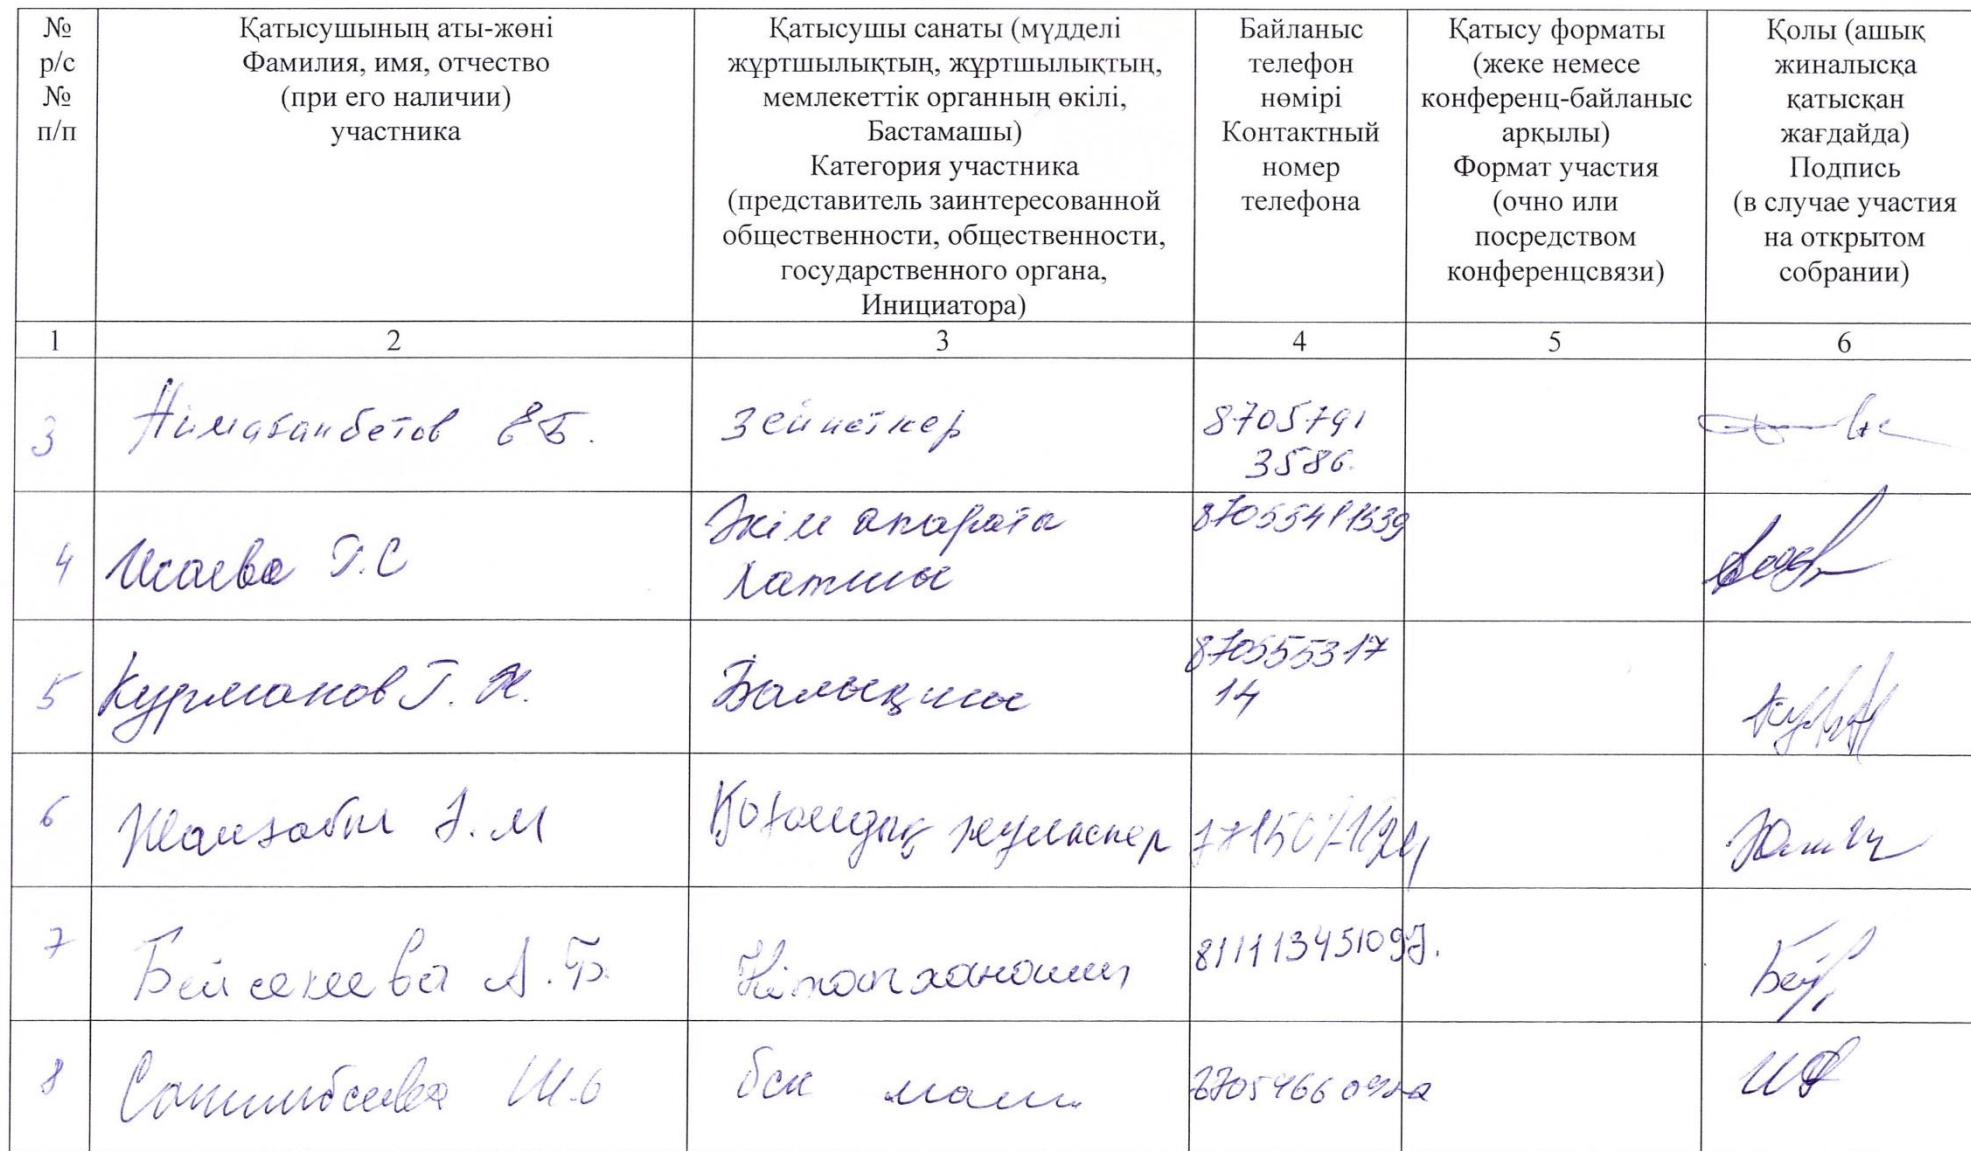 №
р/с
№
п/п
Қатысушының аты-жөні
Фамилия, имя, отчество
(при его наличии)
участника
Қатысушы санаты (мүдделі
жұртшылықтың, жұртшылықтың,
мемлекеттік органның өкілі,
Бастамашы)
Категория участника
(представитель заинтересованной
общественности, общественности,
государственного органа,
Инициатора)
Байланыс
телефон
нөмірі
Контактный
номер
телефона
Қатысу форматы
(жеке немесе
конференц-байланыс
арқылы)
Формат участия
(очно или
посредством
конференцсвязи)
Қолы (ашық
жиналысқа
қатысқан
жағдайда)
Подпись
(в случае участия
на открытом
собрании)
1 2 3 4 5 6
3 Е Б. зейнеткер 8705791
3586.
4 Исаева Г.С Әкім апараты
хатшы
5 Курманов Г. Ж. Балықшы 870555317
14
6 Қоғамдық
7 Бейсекеева А.Б. Кітапханашы
8 бск маш.